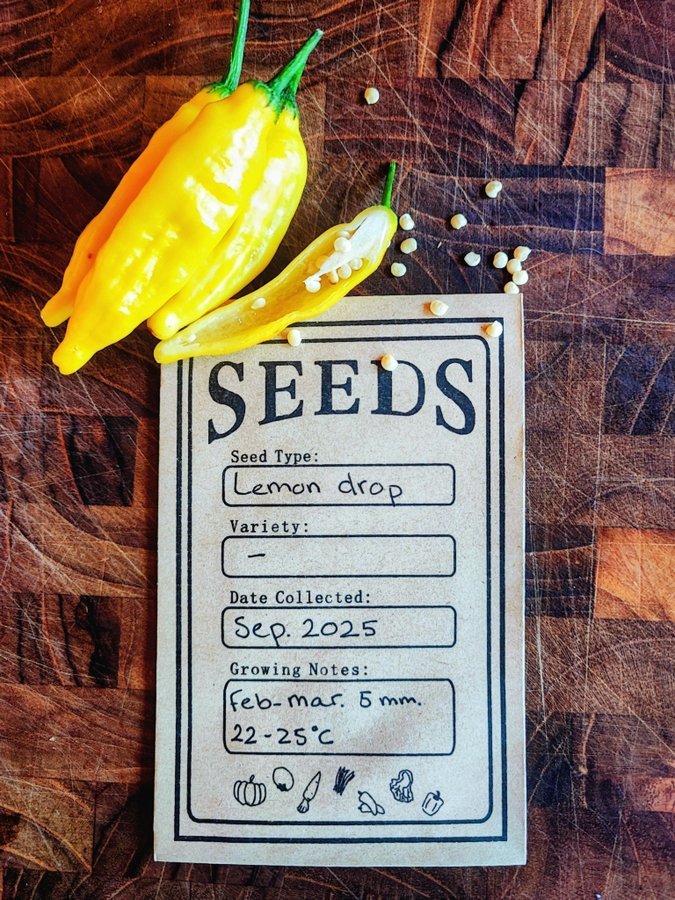 SEEDS
Seed Type:
Lemon drop
Variety:
-
Date Collected:
Sep. 2025
Growing Notes:
Feb-mar. 5 mm.
22-25°C